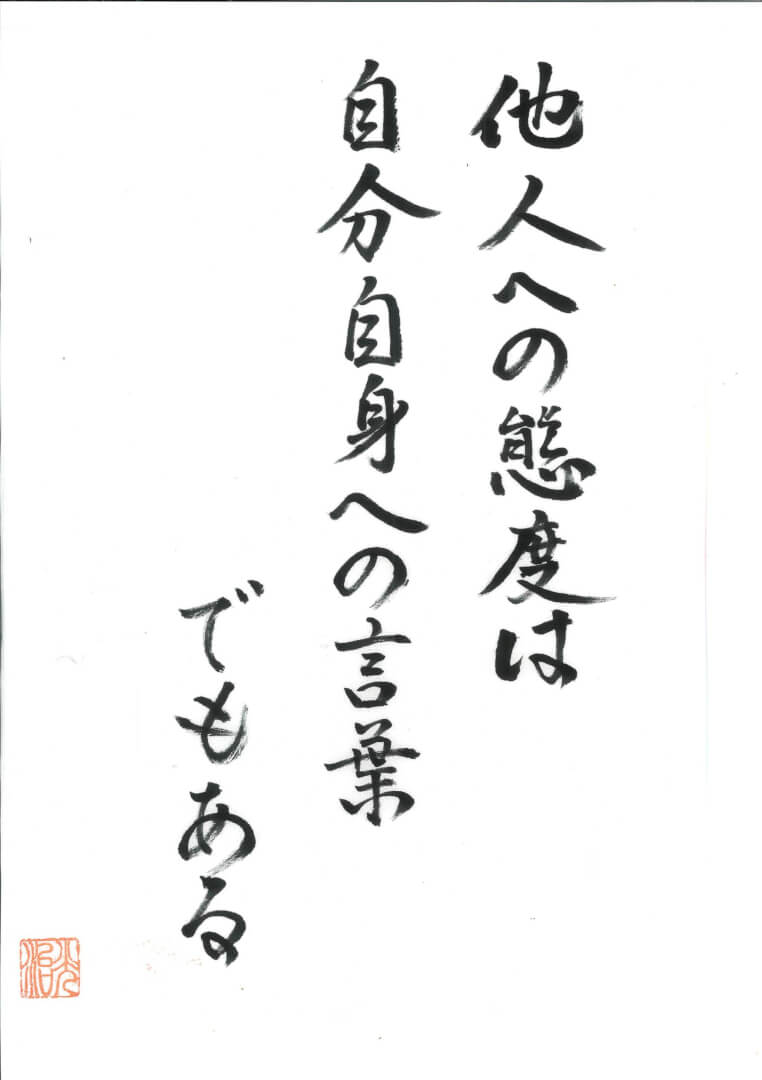 他人への態度は
自分自身への言葉
でもある